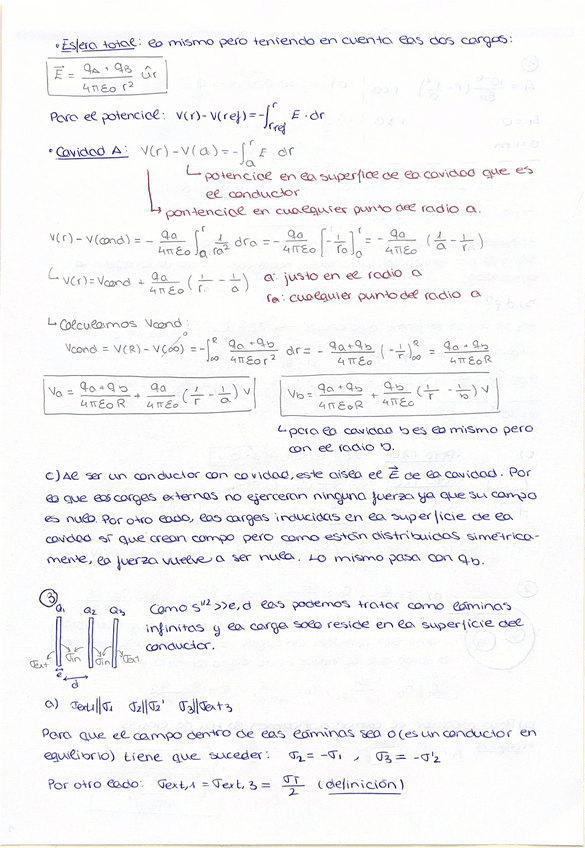 • Esfera total: lo mismo pero teniendo en cuenta las dos cargas:
E⃗ = (qa + qb)/(4πε0 r²) ûr
Para el potencial: V(r) - V(ref) = -∫_rref^r E · dr
• Cavidad A: V(r) - V(a) = -∫_a^r E dr
↳ potencial en la superficie de la cavidad que es
el conductor
↳ pontencial en cualquier punto del radio a.
V(r) - V(cond) = - qa/(4πε0) ∫_a^r 1/ra² dra = - qa/(4πε0) [-1/ra]_a^r = - qa/(4πε0) (1/a - 1/r)
↳ V(r) = Vcond + qa/(4πε0) (1/r - 1/a) a: justo en el radio a
ra: cualquier punto del radio a
↳ Calculamos Vcond:
Vcond = V(R) - V(∞) 0 = -∫_∞^R (qa+qb)/(4πε0 r²) dr = - (qa+qb)/(4πε0) (-1/r)_∞^R = (qa+qb)/(4πε0R)
Va = (qa+qb)/(4πε0R) + qa/(4πε0) (1/r - 1/a) V Vb = (qa+qb)/(4πε0R) + qb/(4πε0) (1/r - 1/b) V
↳ para la cavidad b es lo mismo pero
con el radio b.
c) Al ser un conductor con cavidad, este aisla el E⃗ de la cavidad. Por
lo que las cargas externas no ejerceran ninguna fuerza ya que su campo
es nulo. Por otro lado, las cargas inducidas en la superficie de la
cavidad sí que crean campo pero como están distribuidas simétrica-
mente, la fuerza vuelve a ser nula. Lo mismo pasa con qb.
③ Q1 Q2 Q3 Como S^1/2 >> e, d las podemos tratar como láminas
infinitas y la carga solo reside en la superficie del
conductor.
σext σin σin σext
e
d
a) σext1||σ1 σ2||σ2' σ3||σext3
Para que el campo dentro de las láminas sea 0 (es un conductor en
equilibrio) tiene que suceder: σ2 = -σ1 , σ3 = -σ'2
Por otro lado: σext,1 = σext,3 = σT/2 (definición)